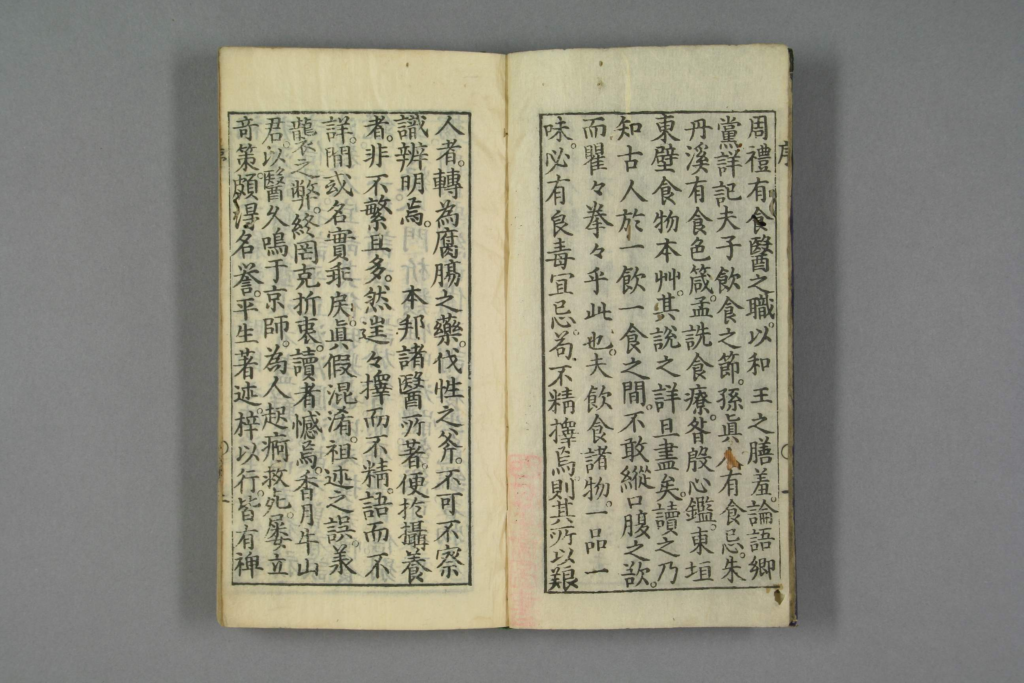 周禮有食醫之職。以和王之膳羞。論語鄉
黨詳記夫子飲食之節。孫眞人有食忌。朱
丹溪有食色箴。孟詵食療。昝殷心鑑。東垣
東壁食物本艸。其說之詳且盡矣。讀之乃
知古人於一飲一食之間。不敢縱口腹之欲。
而瞿々拳々乎此也。夫飲食諸物。一品一
味。必有良毒宜忌。苟不精擇焉則其所以養
人者。轉為腐腸之藥。伐性之斧。不可不察
識辨明焉。本邦諸醫所著。便於攝養
者。非不繁且多。然逞々擇而不精。語而不
詳。間或名實乖戾。眞假混淆。祖述之誤。義
襲之弊。終罔克折衷。讀者憾焉。香月牛山
君。以醫久鳴于京師。為人起痾救死。屡立
奇策。頗得名譽。平生著述。梓以行。皆有裨
序